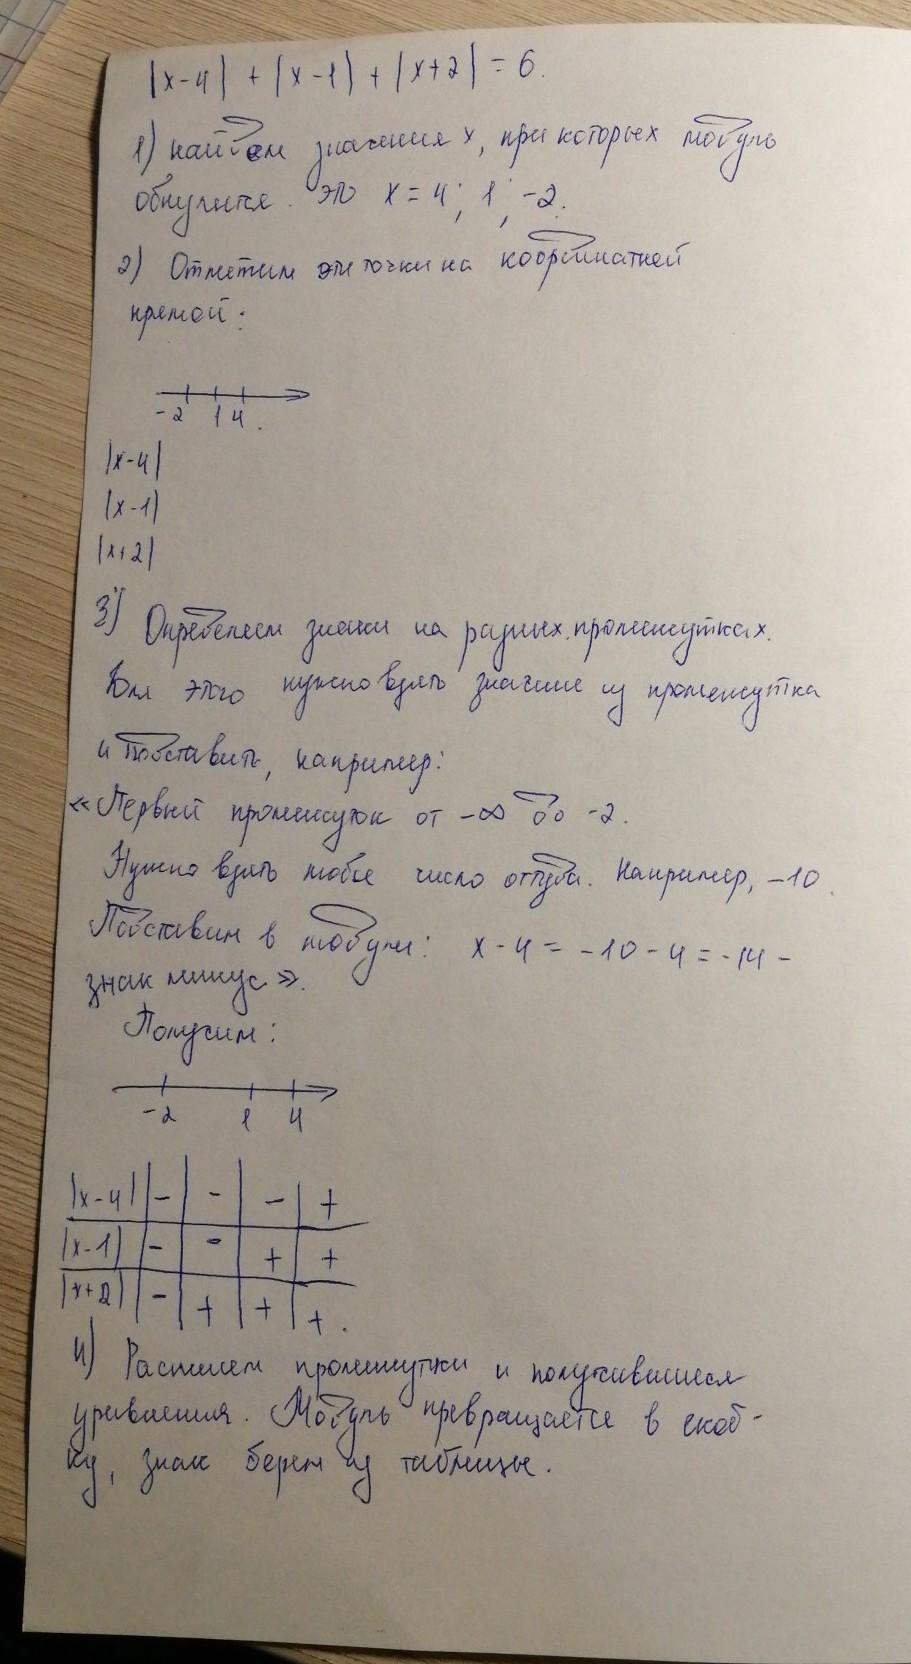 |x-4| + |x-1| + |x+2| = 6.
1) найдем значения x, при которых модуль
обнулится. это x = 4; 1; -2.
2) Отметим эти точки на координатной
прямой:
-2 1 4
|x-4|
|x-1|
|x+2|
3) Определяем знаки на разных промежутках.
Для этого нужно взять значение из промежутка
и подставить, например:
«Первый промежуток от -∞ до -2.
Нужно взять любое число оттуда. Например, -10.
Подставим в модули: x-4 = -10-4 = -14 -
знак минус».
Получим:
-2 1 4
|x-4| - - - +
|x-1| - - + +
|x+2| - + + +.
4) Распишем промежутки и получившиеся
уравнения. Модуль превращается в скоб-
ку, знак берем из таблицы.